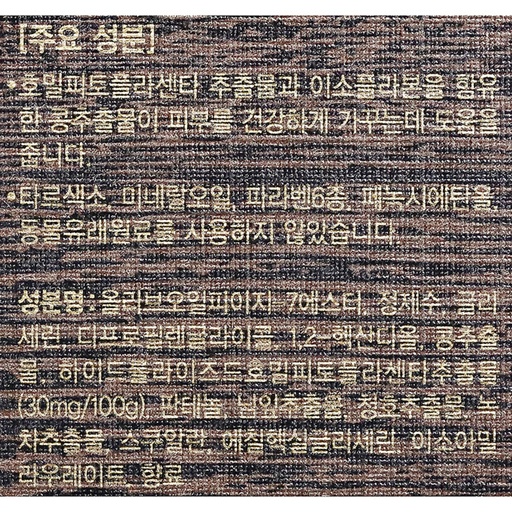 [주요 성분]
•호밀파토플라센타 추출물과 이소플라본을 함유
한 콩추출물이 피부를 건강하게 가꾸는데 도움을
줍니다.
•타르색소, 미네랄오일, 파라벤6종, 페녹시에탄올,
동물유래원료를 사용하지 않았습니다.
성분명: 올리브오일피이지-7에스터, 정제수, 글리
세린, 디프로필렌글라이콜, 1,2-헥산디올, 콩추출
물, 하이드롤라이즈드호밀파토플라센타추출물
(30mg/100g), 판테놀, 난임추출물, 청호추출물, 녹
차추출물, 스쿠알란, 에칠헥실글리세린, 이소아밀
라우레이트, 향료